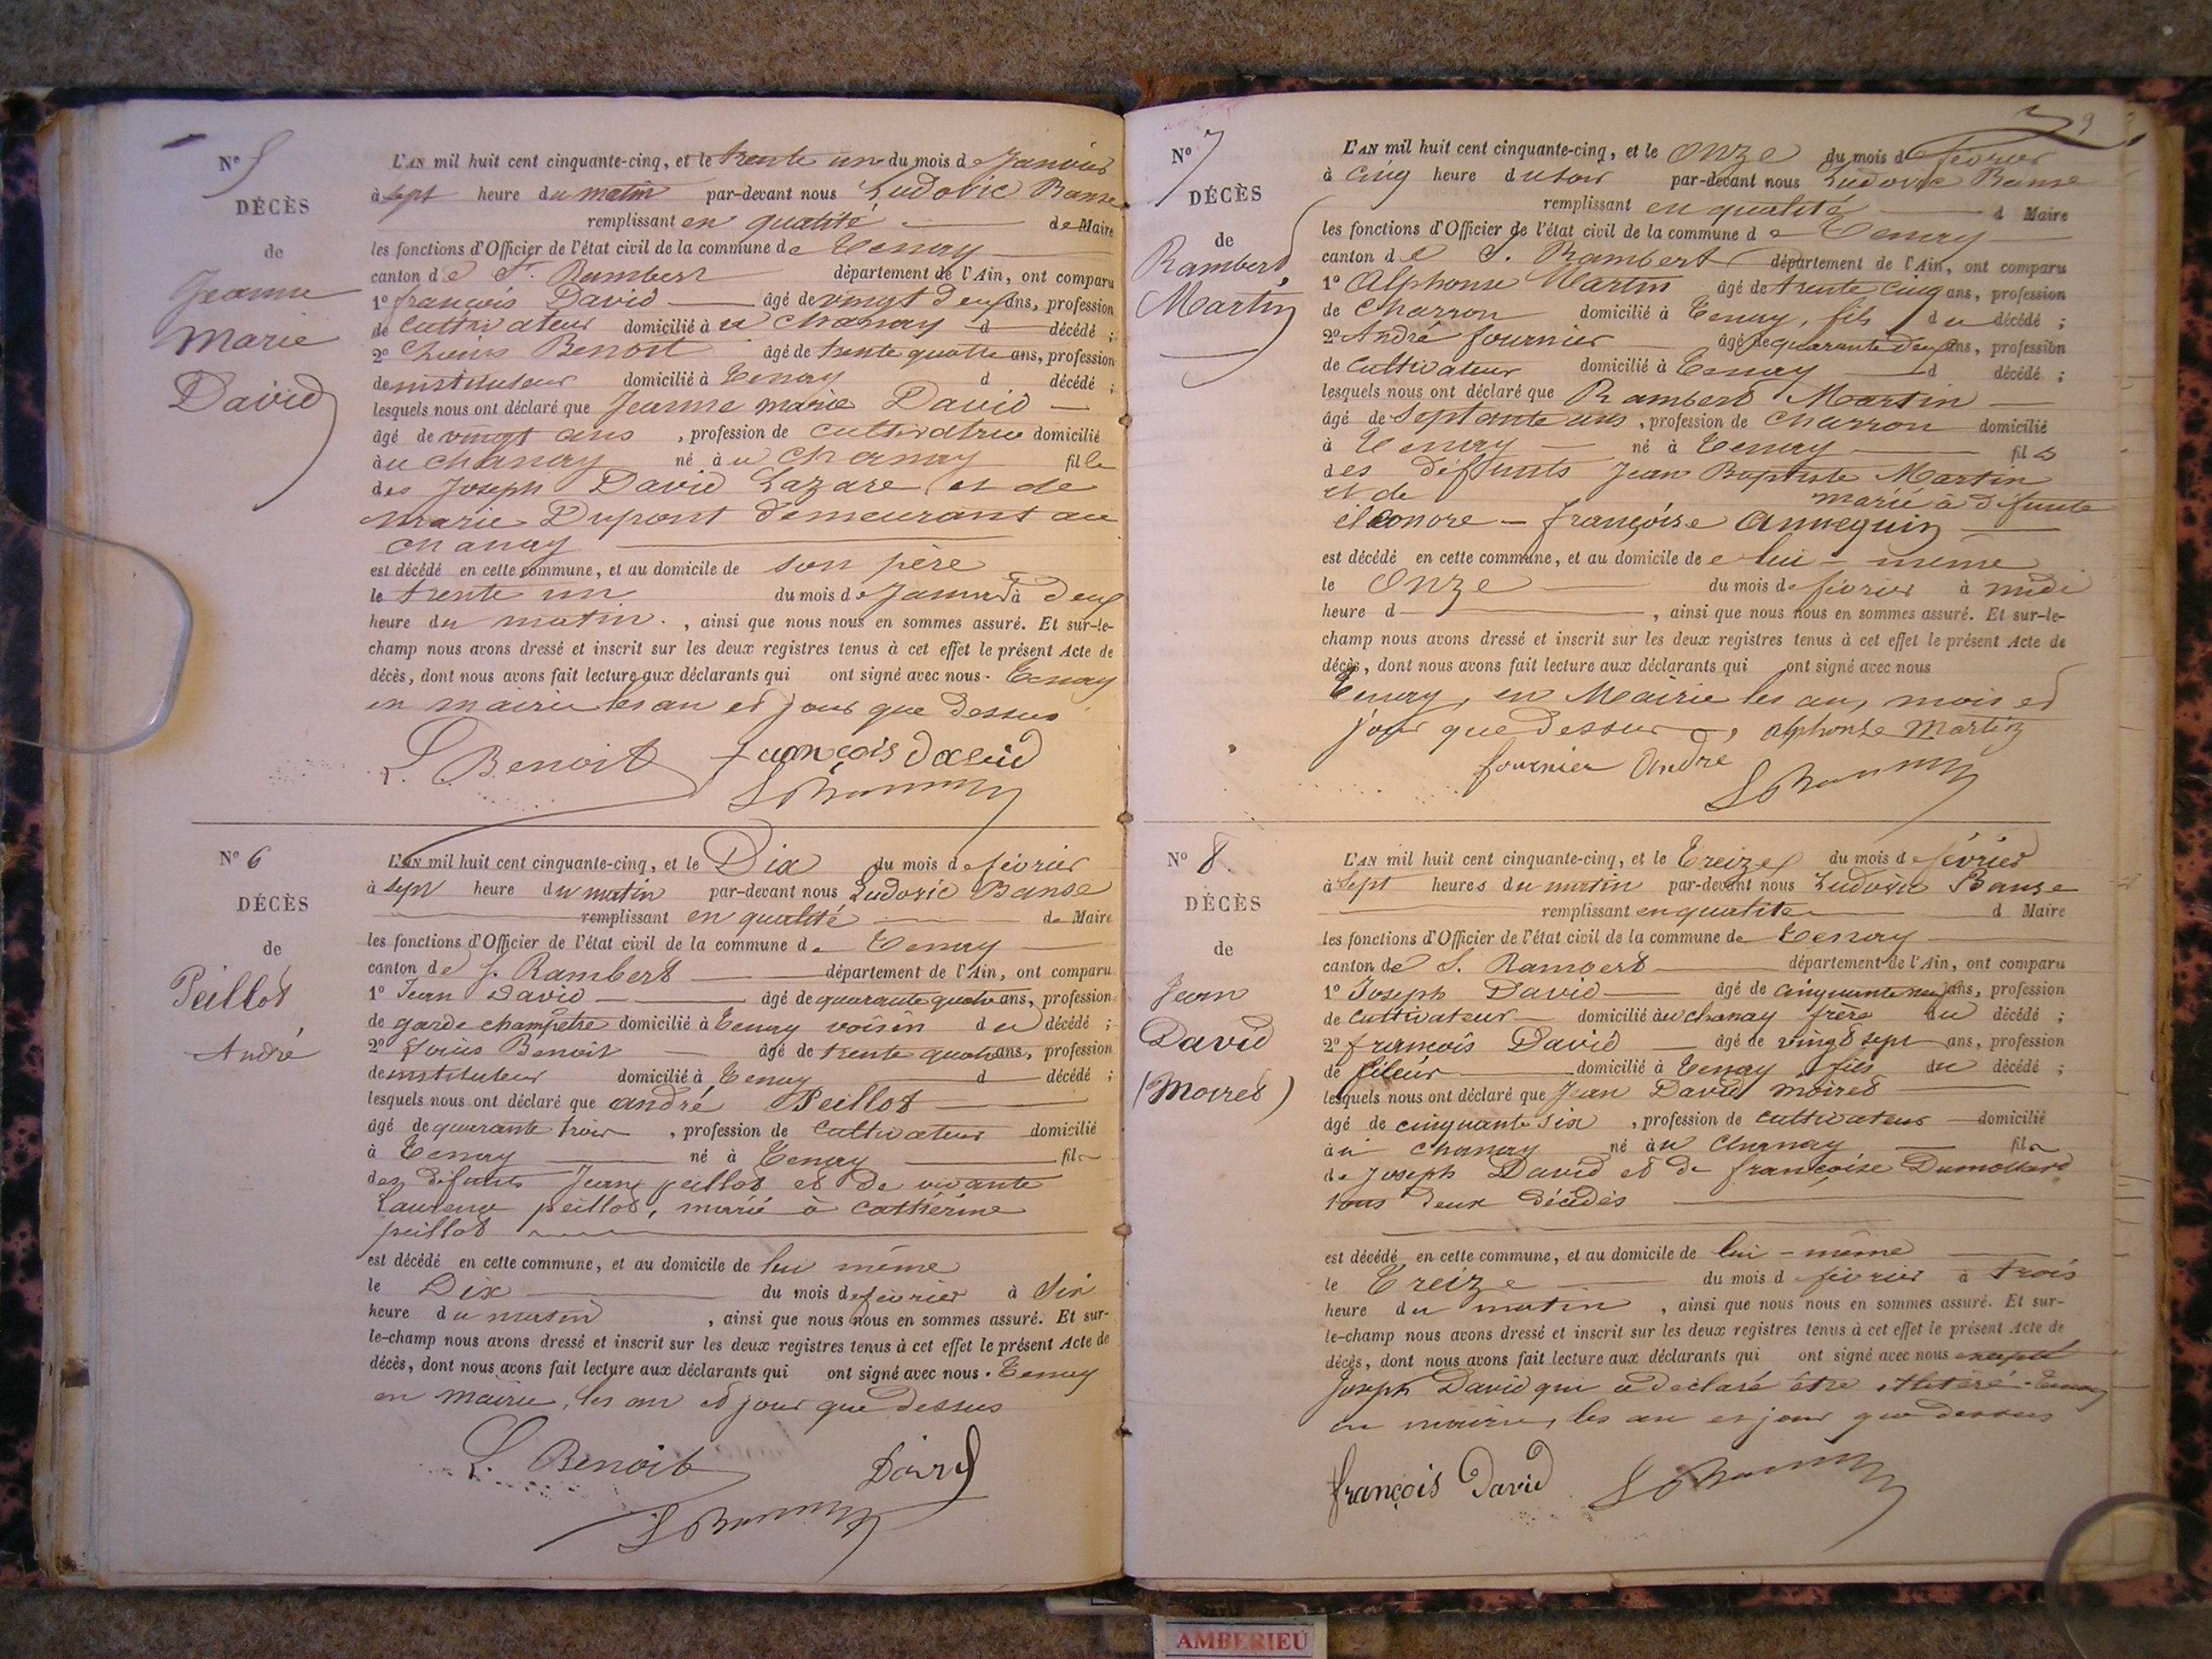 N° 5
DÉCÈS
de
Jeanne
Marie
David
L'AN mil huit cent cinquante-cinq, et le trente un du mois de Janvier
à sept heure du matin par-devant nous Ludovic Banse
remplissant en qualité de Maire
les fonctions d'Officier de l'état civil de la commune de Tenay
canton de St. Rambert département de l'Ain, ont comparu
1° françois David âgé de vingt deux ans, profession
de Cultivateur domicilié à u chanay d décédé ;
2° Benoit âgé de trente quatre ans, profession
de instituteur domicilié à Tenay d décédé ;
lesquels nous ont déclaré que Jeanne marie David
âgé de vingt ans , profession de cultivatrice domicilié
à u chanay né à u chanay fille
des Joseph David Lazare et de
marie Dupont demeurant au
chanay
est décédé en cette commune, et au domicile de son père
le trente un du mois de Janvier à deux
heure du matin. , ainsi que nous nous en sommes assuré. Et sur-le-
champ nous avons dressé et inscrit sur les deux registres tenus à cet effet le présent Acte de
décès, dont nous avons fait lecture aux déclarants qui ont signé avec nous. Tenay
en mairie les an et jour que dessus
L. Benoit françois david
N° 6
DÉCÈS
de
Peillot
André
L'AN mil huit cent cinquante-cinq, et le Dix du mois de février
à sept heure du matin par-devant nous Ludovic Banse
remplissant en qualité de Maire
les fonctions d'Officier de l'état civil de la commune de Tenay
canton de S. Rambert département de l'Ain, ont comparu
1° Jean David âgé de quarante quatre ans, profession
de garde champêtre domicilié à Tenay voisin du décédé ;
2° Louis Benoit âgé de trente quatre ans, profession
de instituteur domicilié à Tenay d décédé ;
lesquels nous ont déclaré que andré Peillot
âgé de quarante trois , profession de Cultivateur domicilié
à Tenay né à Tenay fils
des défunts Jean peillot et de vivante
Laurence peillot, marié à cathérine
peillot
est décédé en cette commune, et au domicile de lui même
le Dix du mois de février à Six
heure du matin , ainsi que nous nous en sommes assuré. Et sur-
le-champ nous avons dressé et inscrit sur les deux registres tenus à cet effet le présent Acte de
décès, dont nous avons fait lecture aux déclarants qui ont signé avec nous. Tenay
en mairie, les an et jour que dessus
L. Benoit David
N° 7
DÉCÈS
de
Rambert
Martin
L'AN mil huit cent cinquante-cinq, et le Onze du mois de février
à cinq heure du soir par-devant nous Ludovic Banse
remplissant en qualité d Maire
les fonctions d'Officier de l'état civil de la commune de Tenay
canton de S. Rambert département de l'Ain, ont comparu
1° Alphonse Martin âgé de trente cinq ans, profession
de Charron domicilié à Tenay, fils du décédé ;
2° André fournier âgé de quarante deux ans, profession
de cultivateur domicilié à Tenay d décédé ;
lesquels nous ont déclaré que Rambert Martin
âgé de septante ans , profession de charron domicilié
à Tenay né à Tenay fils
des défunts Jean Baptiste Martin
et de marié à défunte
éléonore - françoise Annequin
est décédé en cette commune, et au domicile de lui - même
le Onze du mois de février à midi
heure d , ainsi que nous nous en sommes assuré. Et sur-le-
champ nous avons dressé et inscrit sur les deux registres tenus à cet effet le présent Acte de
décès, dont nous avons fait lecture aux déclarants qui ont signé avec nous
Tenay, en Mairie les an, mois et
jour que dessus, alphonse Martin
fournier André
N° 8.
DÉCÈS
de
Jean
David
(Moiret)
L'AN mil huit cent cinquante-cinq, et le Treize du mois de février
à Sept heures du matin par-devant nous Ludovic Banse
remplissant en qualité d Maire
les fonctions d'Officier de l'état civil de la commune de Tenay
canton de S. Rambert département de l'Ain, ont comparu
1° Joseph David âgé de cinquante neuf ans, profession
de Cultivateur domicilié à u chanay frère du décédé ;
2° françois David âgé de vingt sept ans, profession
de fileur domicilié à Tenay fils du décédé ;
lesquels nous ont déclaré que Jean David moiret
âgé de cinquante six , profession de cultivateur domicilié
à u chanay né à u chanay fils
de Joseph David et de françoise Dumollard
tous deux décédés
est décédé en cette commune, et au domicile de lui - même
le Treize du mois d février à trois
heure du matin , ainsi que nous nous en sommes assuré. Et sur-
le-champ nous avons dressé et inscrit sur les deux registres tenus à cet effet le présent Acte de
décès, dont nous avons fait lecture aux déclarants qui ont signé avec nous excepté
Joseph David qui a déclaré être illetéré. Tenay
en mairie, les an et jour que dessus
françois David
AMBERIEU